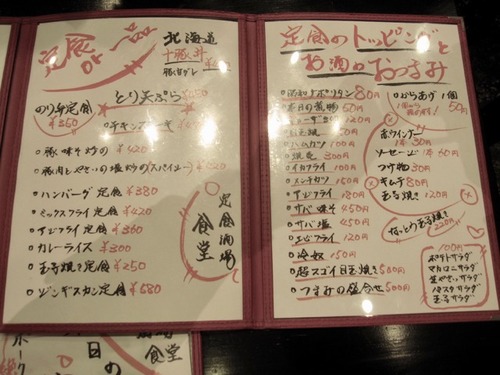 定食or一品
北海道
十豚丼
のり弁定食
¥350
とり天ぷら
チキンステーキ
豚味そ炒め ¥420
豚肉とやさいの塩炒め(スパイシー) ¥420
ハンバーグ定食 ¥380
ミックスフライ定食 ¥420
アジフライ定食 ¥360
カレーライス ¥300
玉子焼き定食 ¥250
ジンギスカン定食 ¥680
定食酒場
食堂
定食のトッピングと
お酒のおつまみ
昭和ナポリタン 80円
本日の煮物 50円
ハムカツ 100円
イカフライ 100円
メンチカツ 150円
アジフライ 180円
サバ味そ 450円
サバ塩 450円
エビフライ 120円
冷奴 150円
超スゴイ目玉焼き 500円
つまみの盛合せ 500円
からあげ 1個
50円
赤ウインナー
1本 30円
ソーセージ 1本 60円
つけ物 30円
キムチ 80円
玉子焼き 120円
なっとう玉子焼き
220円
100円
ポテトサラダ
マカロニサラダ
生やさいサラダ
パスタサラダ
玉子サラダ
食堂